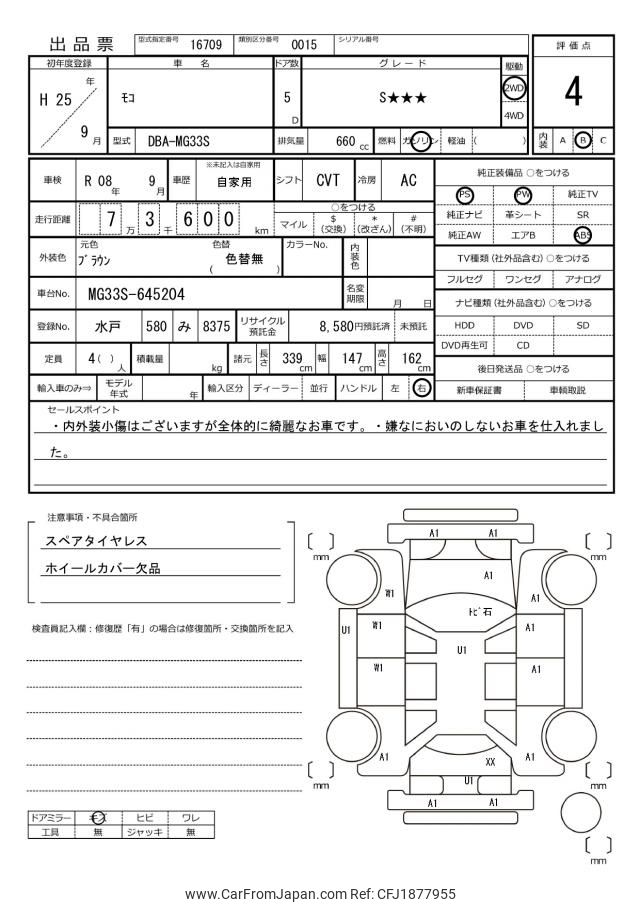 出品票
型式指定番号 16709 類別区分番号 0015 シリアル番号
初年度登録 車名 ドア数 グレード 駆動
H 25 年 9 月 ﾓｺ 5 D S★★★ 2WD 4WD
型式 DBA-MG33S 排気量 660 cc 燃料 ガソリン 軽油 ( )
評価点
4
内装 A B C
車検 R 08 年 9 月 車歴 ※未記入は自家用 自家用 シフト CVT 冷房 AC
走行距離 7 万 3 千 6 0 0 km
○をつける
マイル $ (交換) * (改ざん) # (不明)
外装色 元色 ﾌﾞﾗｳﾝ 色替 ( 色替無 ) カラーNo. 内装色
車台No. MG33S-645204 名変期限 月 日
登録No. 水戸 580 み 8375 リサイクル預託金 8,580円預託済 未預託
定員 4 ( ) 人 積載量 kg 諸元 長さ 339 cm 幅 147 cm 高さ 162 cm
輸入車のみ⇒ モデル年式 年 輸入区分 ディーラー 並行 ハンドル 左 右
純正装備品 ○をつける
PS PW 純正TV
純正ナビ 革シート SR
純正AW エアB ABS
TV種類 (社外品含む) ○をつける
フルセグ ワンセグ アナログ
ナビ種類 (社外品含む) ○をつける
HDD DVD SD
DVD再生可 CD
後日発送品 ○をつける
新車保証書 車輌取説
セールスポイント
・内外装小傷はございますが全体的に綺麗なお車です。・嫌なにおいのしないお車を仕入れまし
た。
注意事項・不具合箇所
スペアタイヤレス
ホイールカバー欠品
検査員記入欄：修復歴「有」の場合は修復箇所・交換箇所を記入
ドアミラー キズ ヒビ ワレ
工具 無 ジャッキ 無
A1 A1
mm mm
A1
W1 A1
ﾄﾋﾞ石
U1 W1 A1
U1
W1 A1
A1 A1
XX
mm U1 mm
A1 A1
mm
www.CarFromJapan.com Ref: CFJ1877955